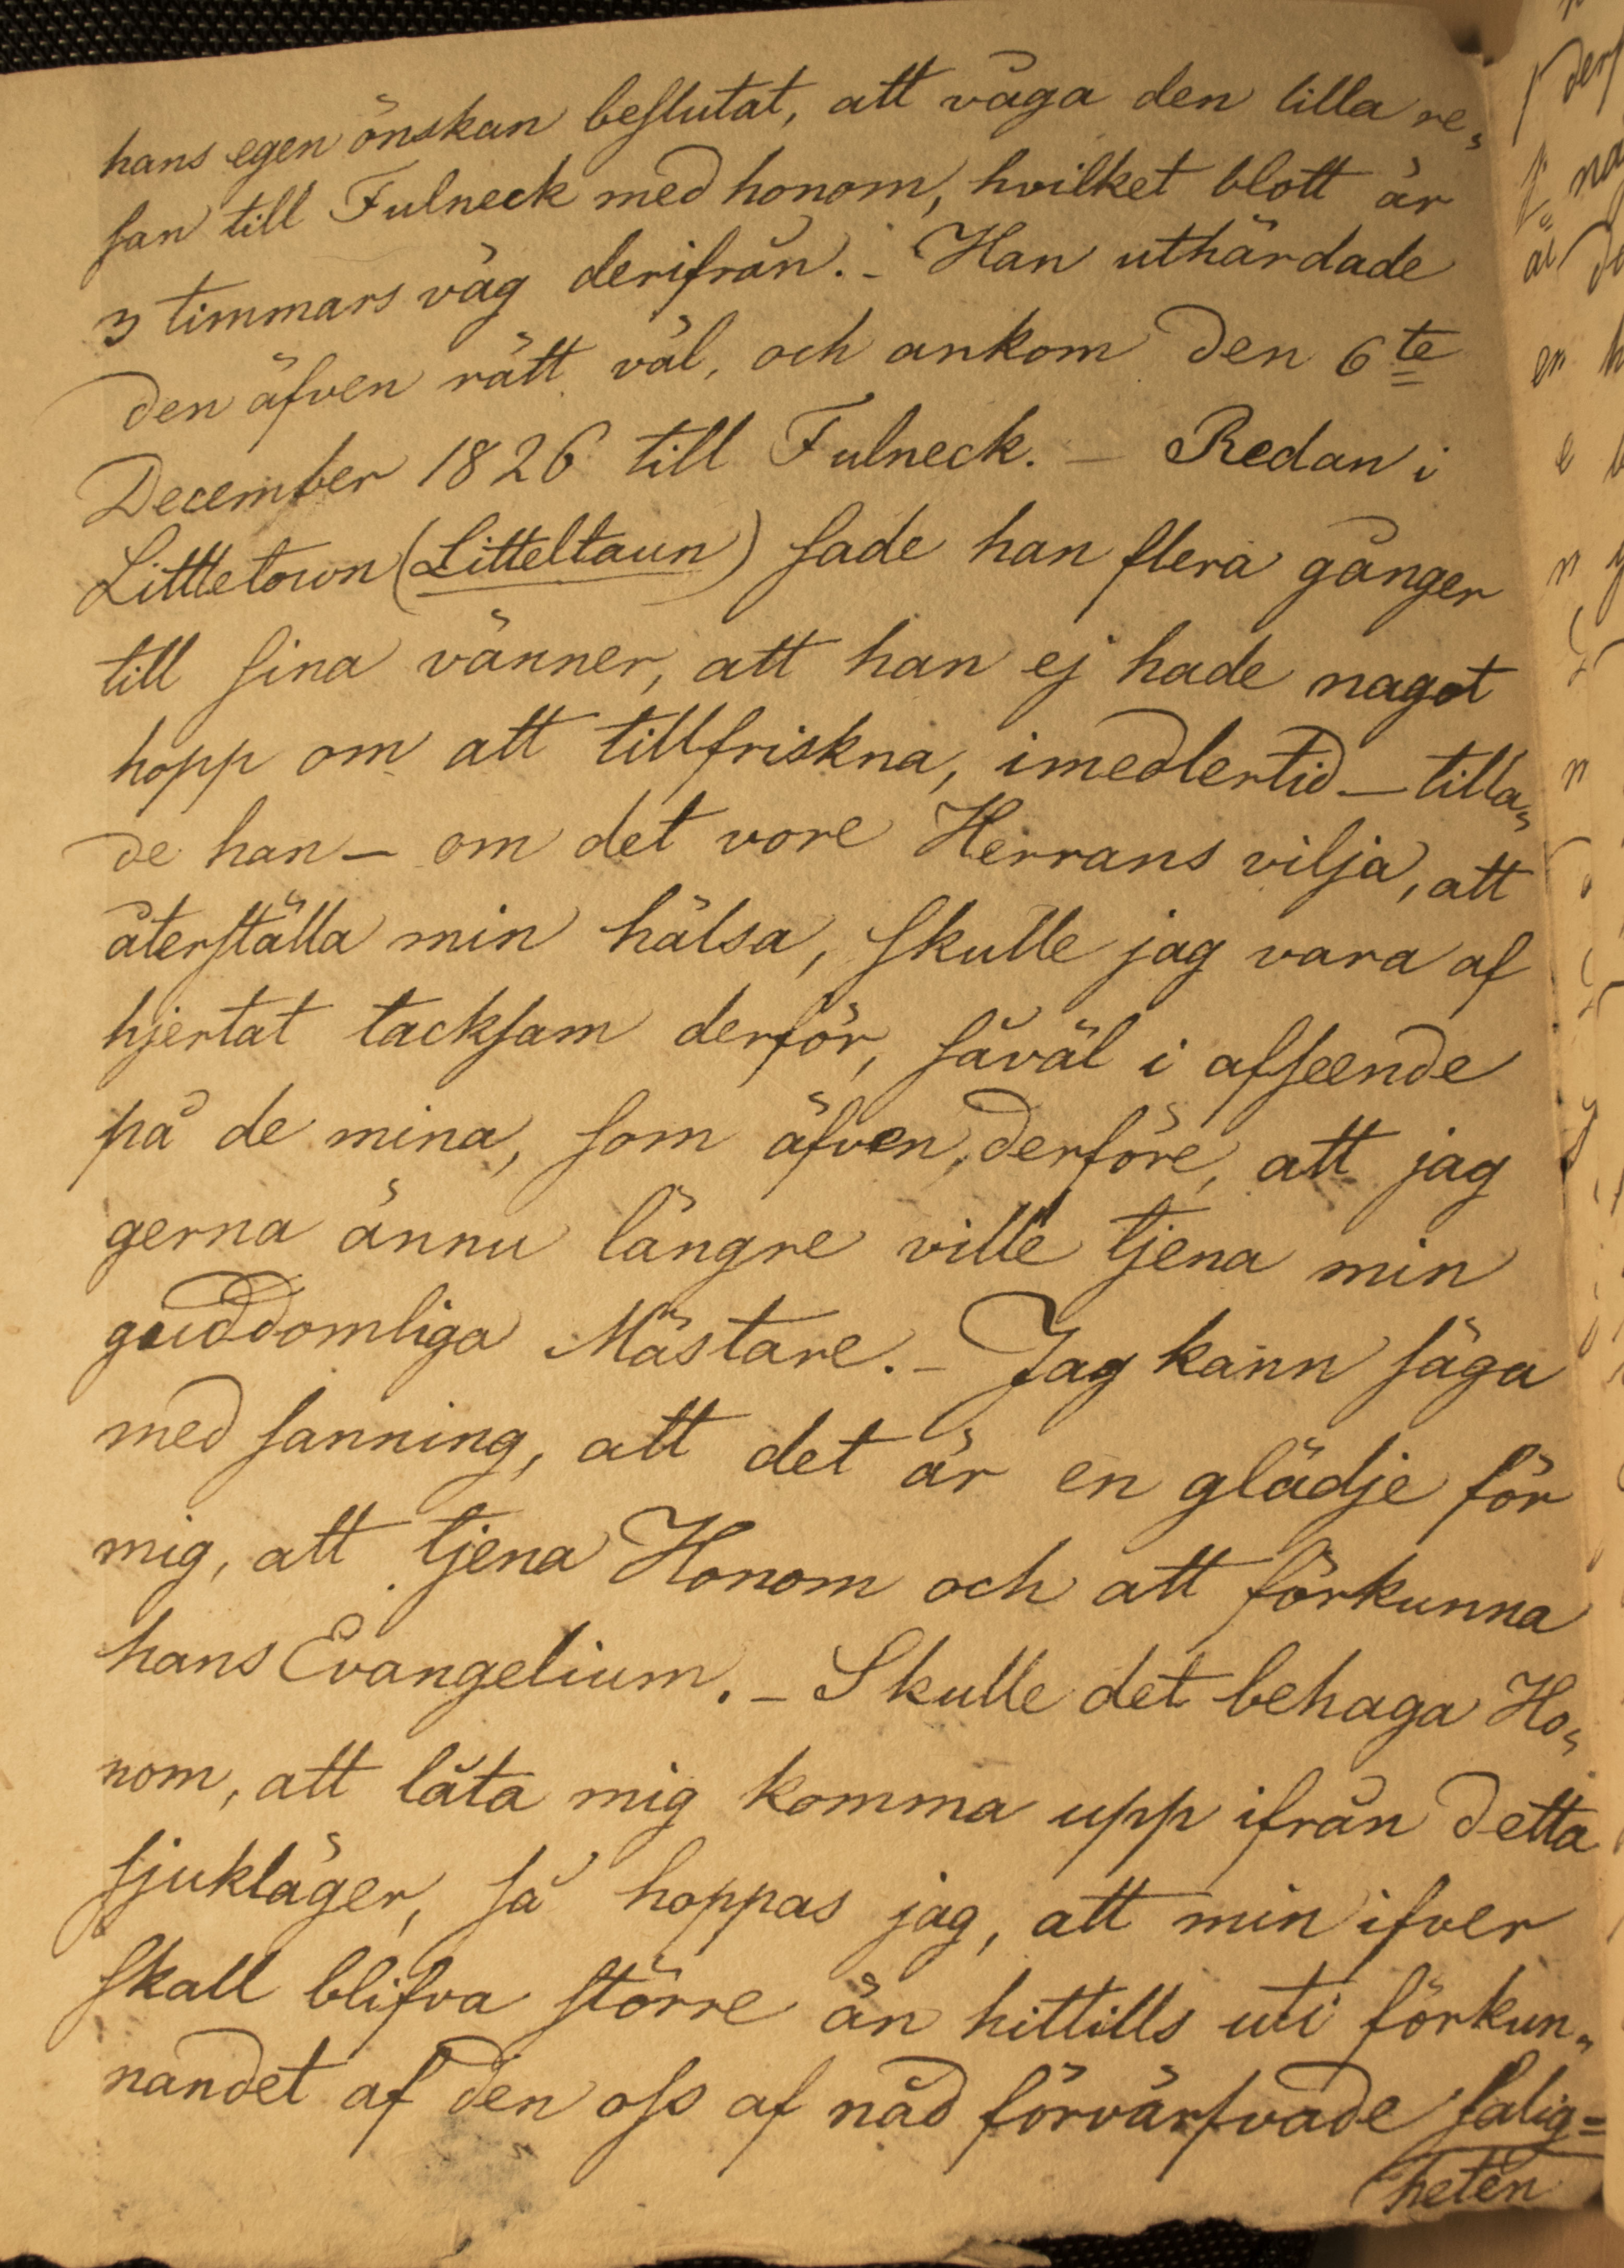 hans egen önskan beslutat, att våga den lilla re-
san till Fulneck med honom, hvilket blott är
3 timmars väg derifrån. - Han uthärdade
den äfven rätt väl, och ankom den 6te
December 1826 till Fulneck. - Redan i
Littletown (Litteltaun) sade han flera gånger
till sina vänner, att han ej hade nagot
hopp om att tillfriskna, imedlertid - tilla-
de han - om det vore Herrans vilja, att
återställa min hälsa, skulle jag vara af
hjertat tacksam derför, såväl i afseende
på de mina, som äfven, derföre, att jag
gerna ännu längre ville tjena min
guddomliga Mästare. - Jag kann säga
med sanning, att det är en glädje för
mig, att tjena Honom och att förkunna
hans Evangelium. - Skulle det behaga Ho-
nom, att låta mig komma upp ifrån detta
sjukläger, så hoppas jag, att min ifver
skall blifva större än hittills uti förkun-
nandet af den oss af nåd förvärfvade salig=
heten